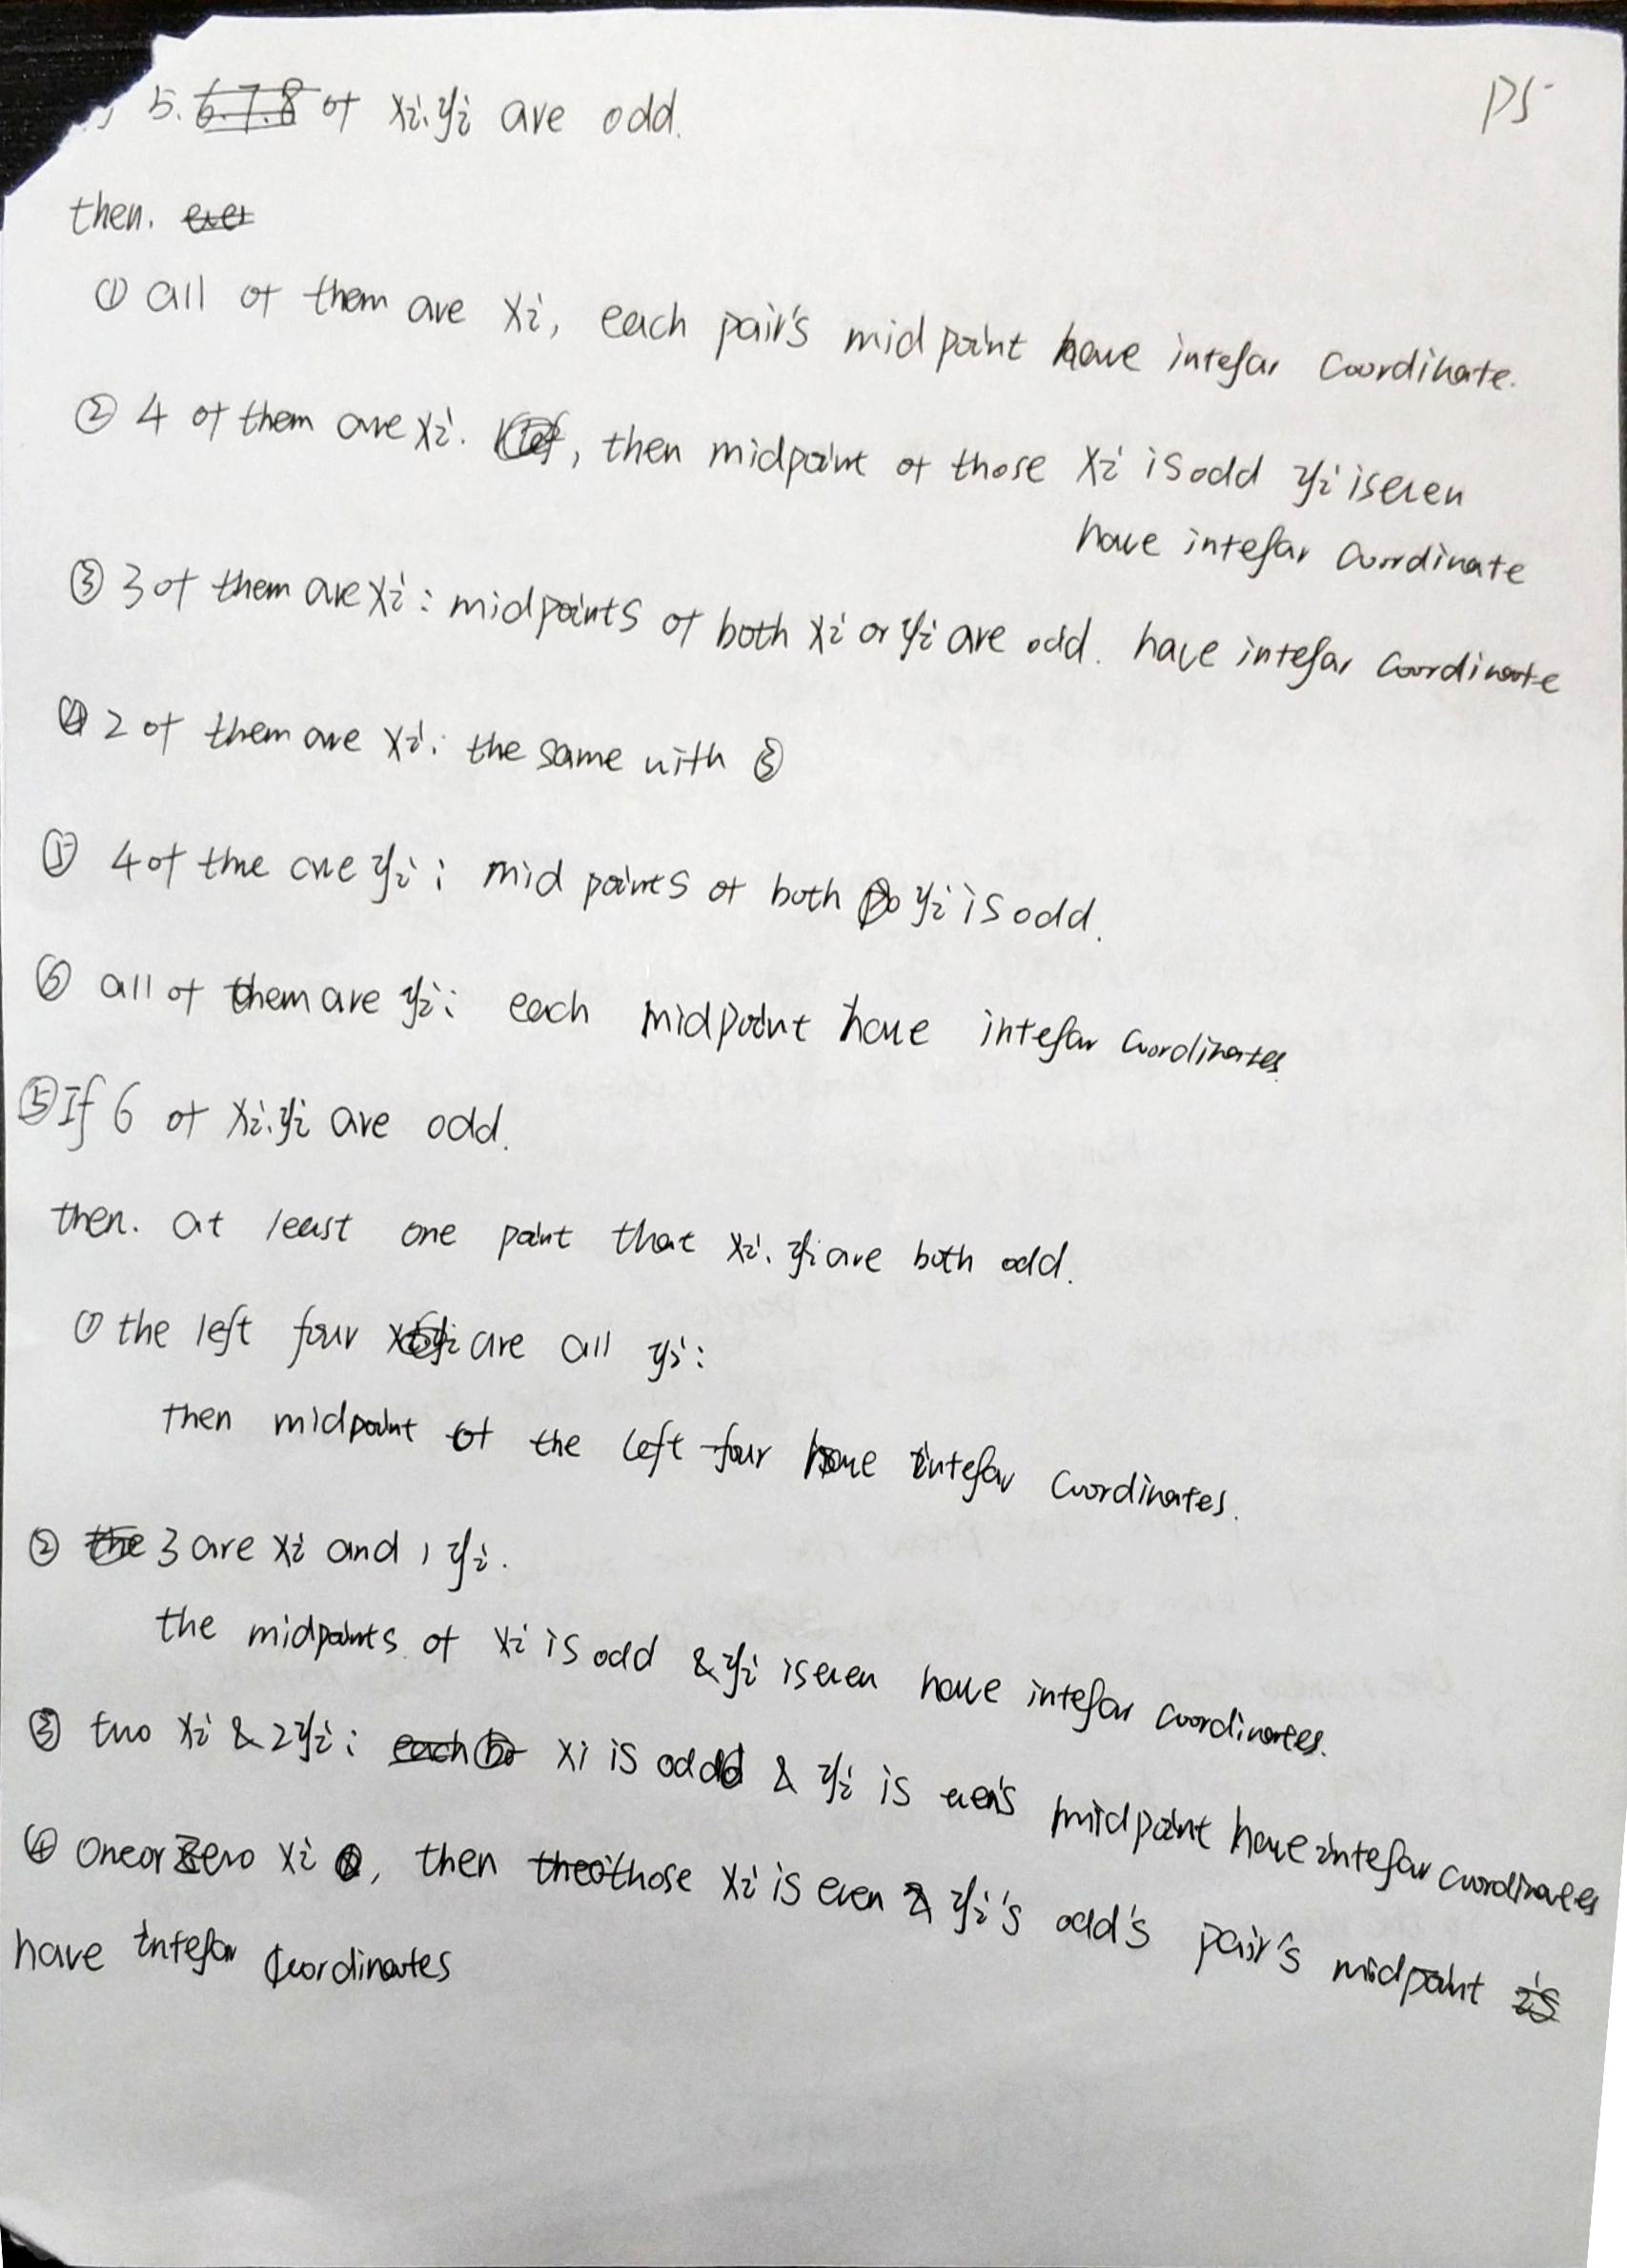 5. 6.7.8 of xi.yi are odd. P5
then. ever
① all of them are xi, each pair's midpoint have intefar coordinate.
② 4 of them are xi. , then midpoint of those xi is odd yi is even
have intefar coordinate
③ 3 of them are xi: midpoints of both xi or yi are odd. have intefar coordinate
④ 2 of them are xi: the same with ③
⑤ 4 of the are yi: mid points of both yi is odd.
⑥ all of them are yi: each midpoint have intefar coordinates
⑤ If 6 of xi.yi are odd.
then. at least one point that xi. yi are both odd.
① the left four are all yi:
then midpoint of the left four have intefar coordinates.
② the 3 are xi and 1 yi.
the midpoints of xi is odd & yi is even have intefar coordinates.
③ two xi & 2yi: each xi is odd & yi is even's midpoint have intefar coordinates
④ One or zero xi , then those xi is even & yi's odd's pair's midpoint is
have intefar coordinates